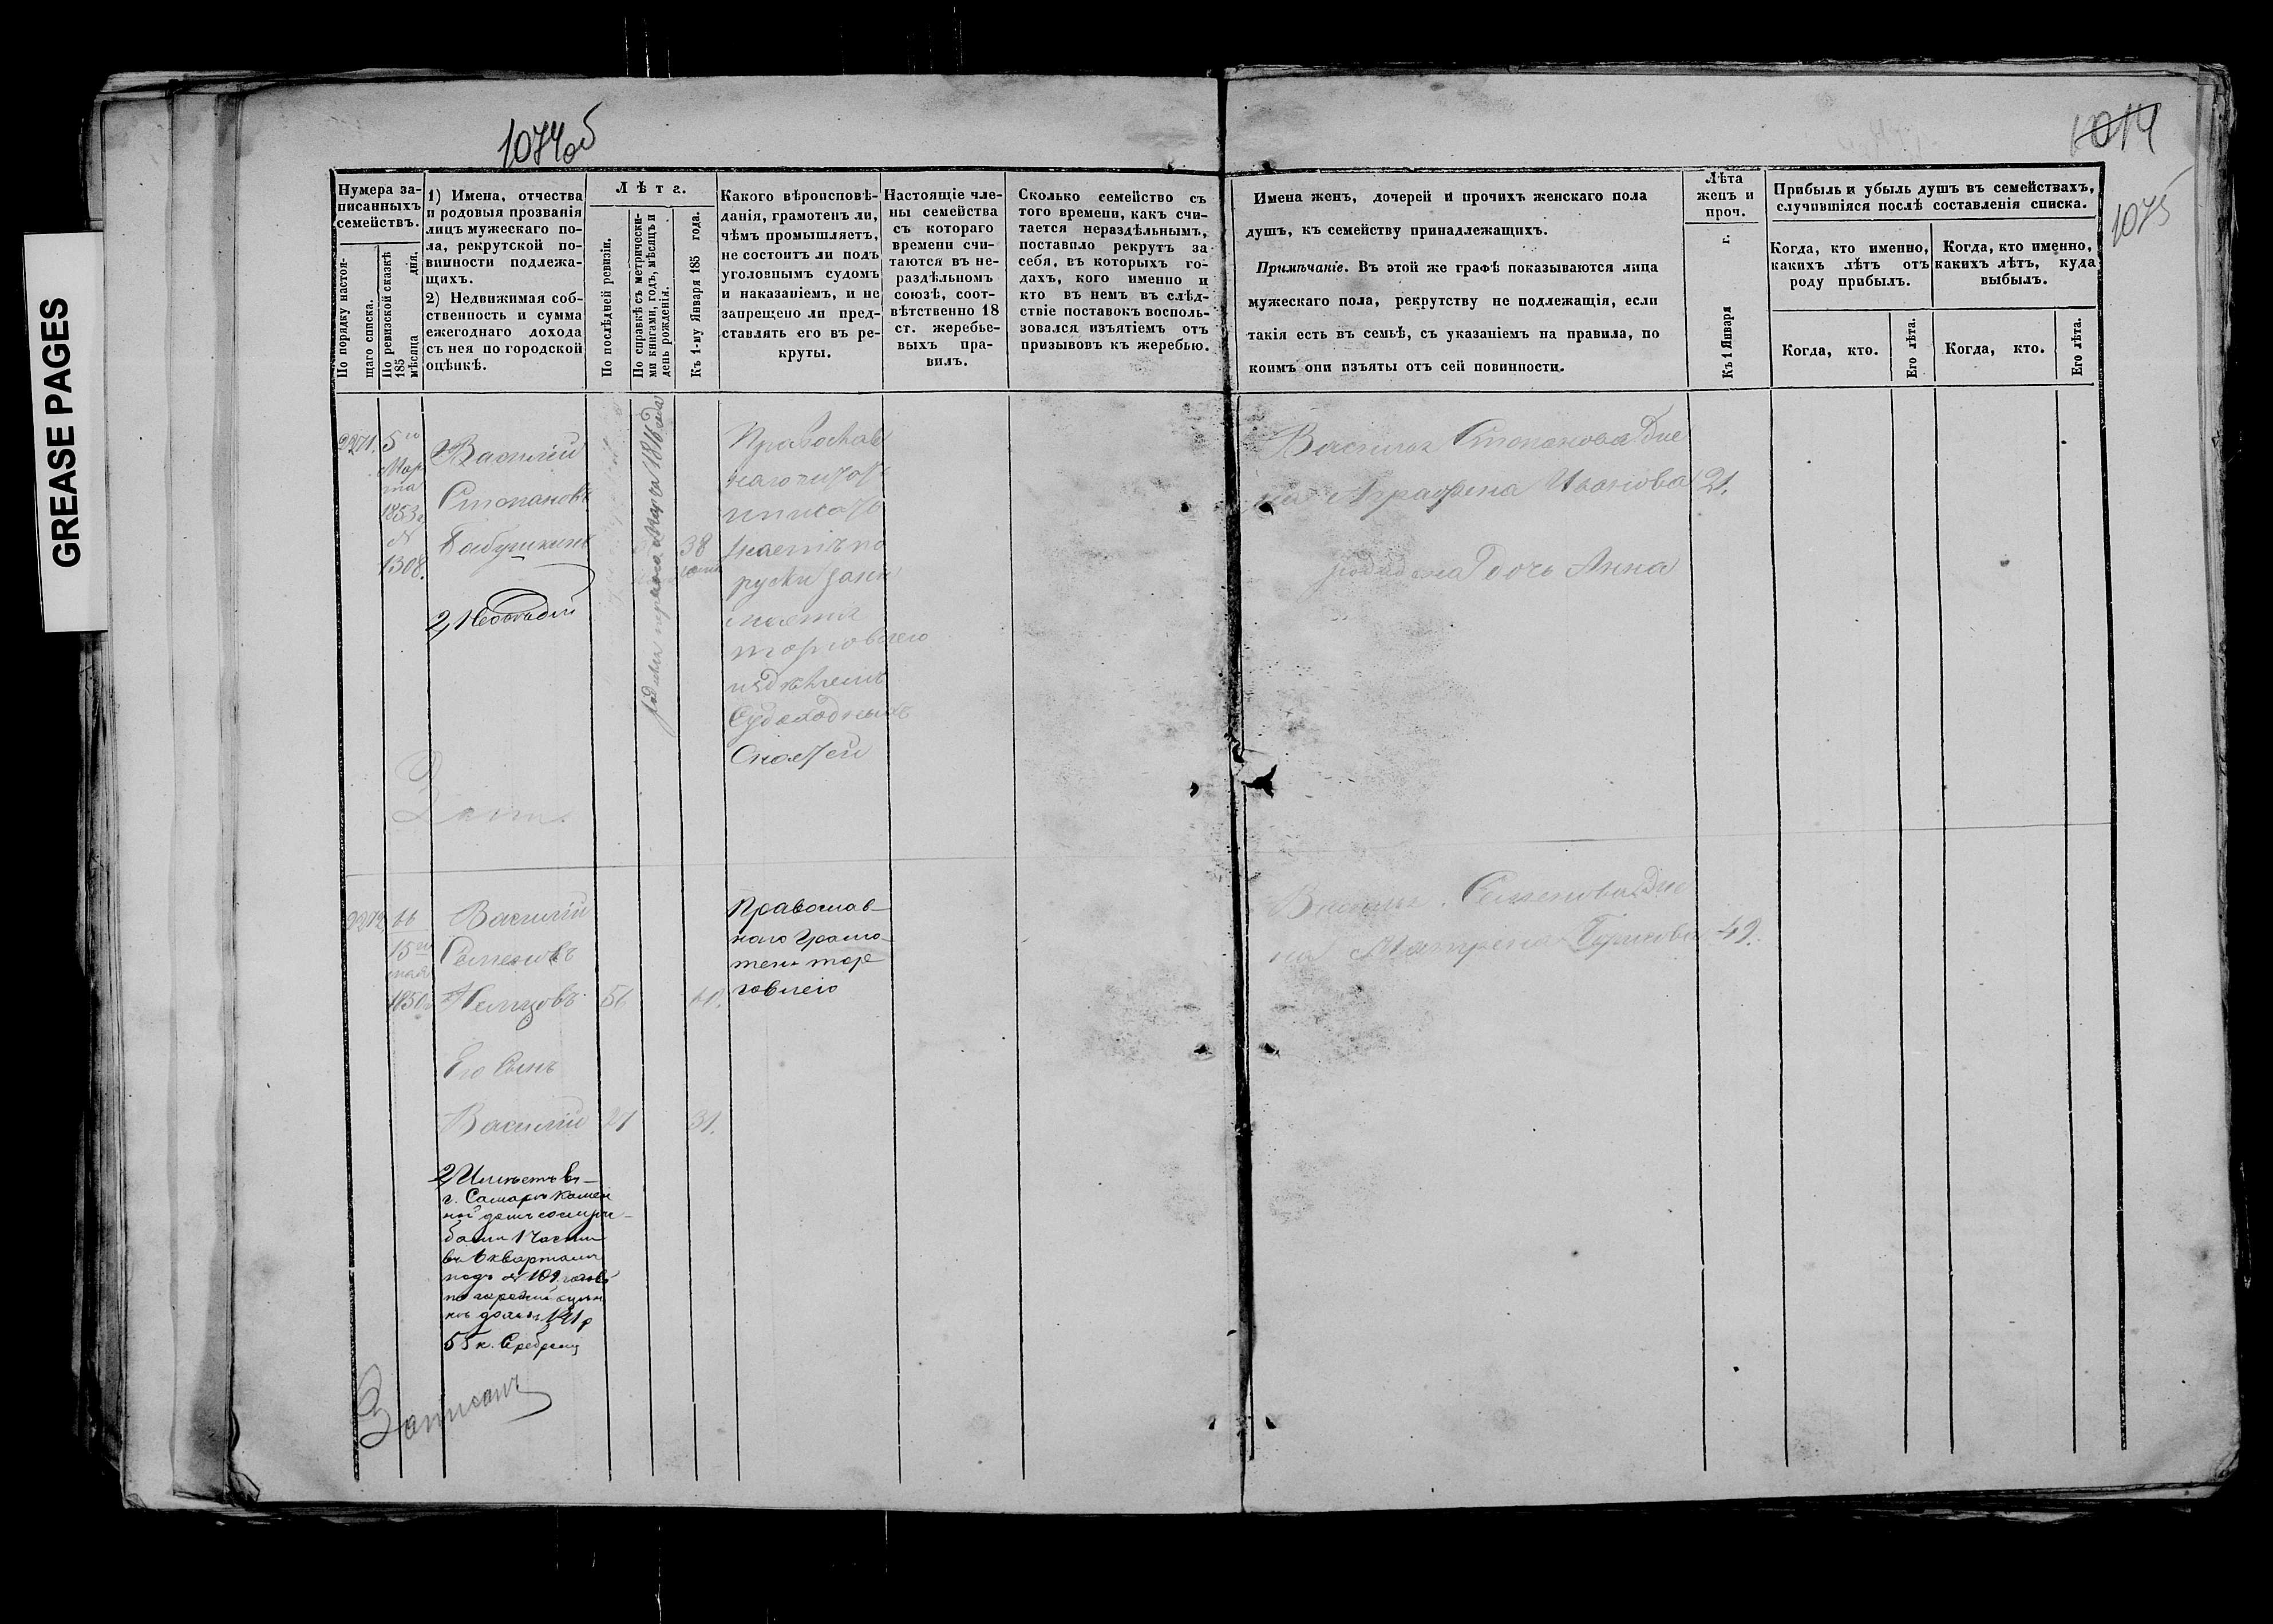 GREASE PAGES
1074об
1014
1075
Нумера за-
писанныхъ
семействъ.
По порядку настоя-
щаго списка.
По ревизской сказкѣ
185 дня.
мѣсяца
1) Имена, отчества
и родовыя прозванія
лицъ мужескаго по-
ла, рекрутской по-
винности подлежа-
щихъ.
2) Недвижимая соб-
ственность и сумма
ежегоднаго дохода
съ нея по городской
оцѣнкѣ.
Лѣта.
По послѣдней ревизіи.
По справкѣ съ метрически-
ми книгами, годъ, мѣсяцъ и
день рожденія.
Къ 1-му Января 185 года.
Какого вѣроисповѣ-
данія, грамотенъ ли,
чѣмъ промышляетъ,
не состоитъ ли подъ
уголовнымъ судомъ
и наказаніемъ, и не
запрещено ли пред-
ставлять его въ ре-
круты.
Настоящіе чле-
ны семейства
съ котораго
времени счи-
таются въ не-
раздѣльномъ
союзѣ, соот-
вѣтственно 18
ст. жеребье-
выхъ пра-
вилъ.
Сколько семейство съ
того времени, какъ счи-
тается нераздѣльнымъ,
поставило рекрутъ за
себя, въ которыхъ го-
дахъ, кого именно и
кто въ немъ въ слѣд-
ствіе поставокъ восполь-
зовался изъятіемъ отъ
призывовъ къ жеребью.
Имена женъ, дочерей и прочихъ женскаго пола
душъ, къ семейству принадлежащихъ.
Примѣчаніе. Въ этой же графѣ показываются лица
мужескаго пола, рекрутству не подлежащія, если
такія есть въ семьѣ, съ указаніемъ на правила, по
коимъ они изъяты отъ сей повинности.
Лѣта
женъ и
проч.
Къ 1 Января г.
Прибыль и убыль душъ въ семействахъ,
случившіяся послѣ составленія списка.
Когда, кто именно,
какихъ лѣтъ отъ
роду прибылъ.
Когда, кто именно,
какихъ лѣтъ, куда
выбылъ.
Когда, кто.
Его лѣта.
Когда, кто.
Его лѣта.
2271.
5го
Мар
та
1853
№
1308.
Василій
Степановъ
Бабушкинъ
2, Не
родился перваго Марта 1816 года
38
Православ
наго
Василья Степанова Же
на Аграфена Иванова 21.
дочь Анна
Зап.
2272
15го
мая
1850
Василій
Семеновъ
56
Его Сынъ
Василій 21 31.
2, Имѣетъ въ
г. Самарѣ камен
ной домъ
1 части
въ 6 кварталѣ
подъ № 109
141 р
55 к. Серебромъ
Записанъ
Православ-
наго Грамо-
тенъ тор
говлею
Василья Семенова Же
на Матрена 49.